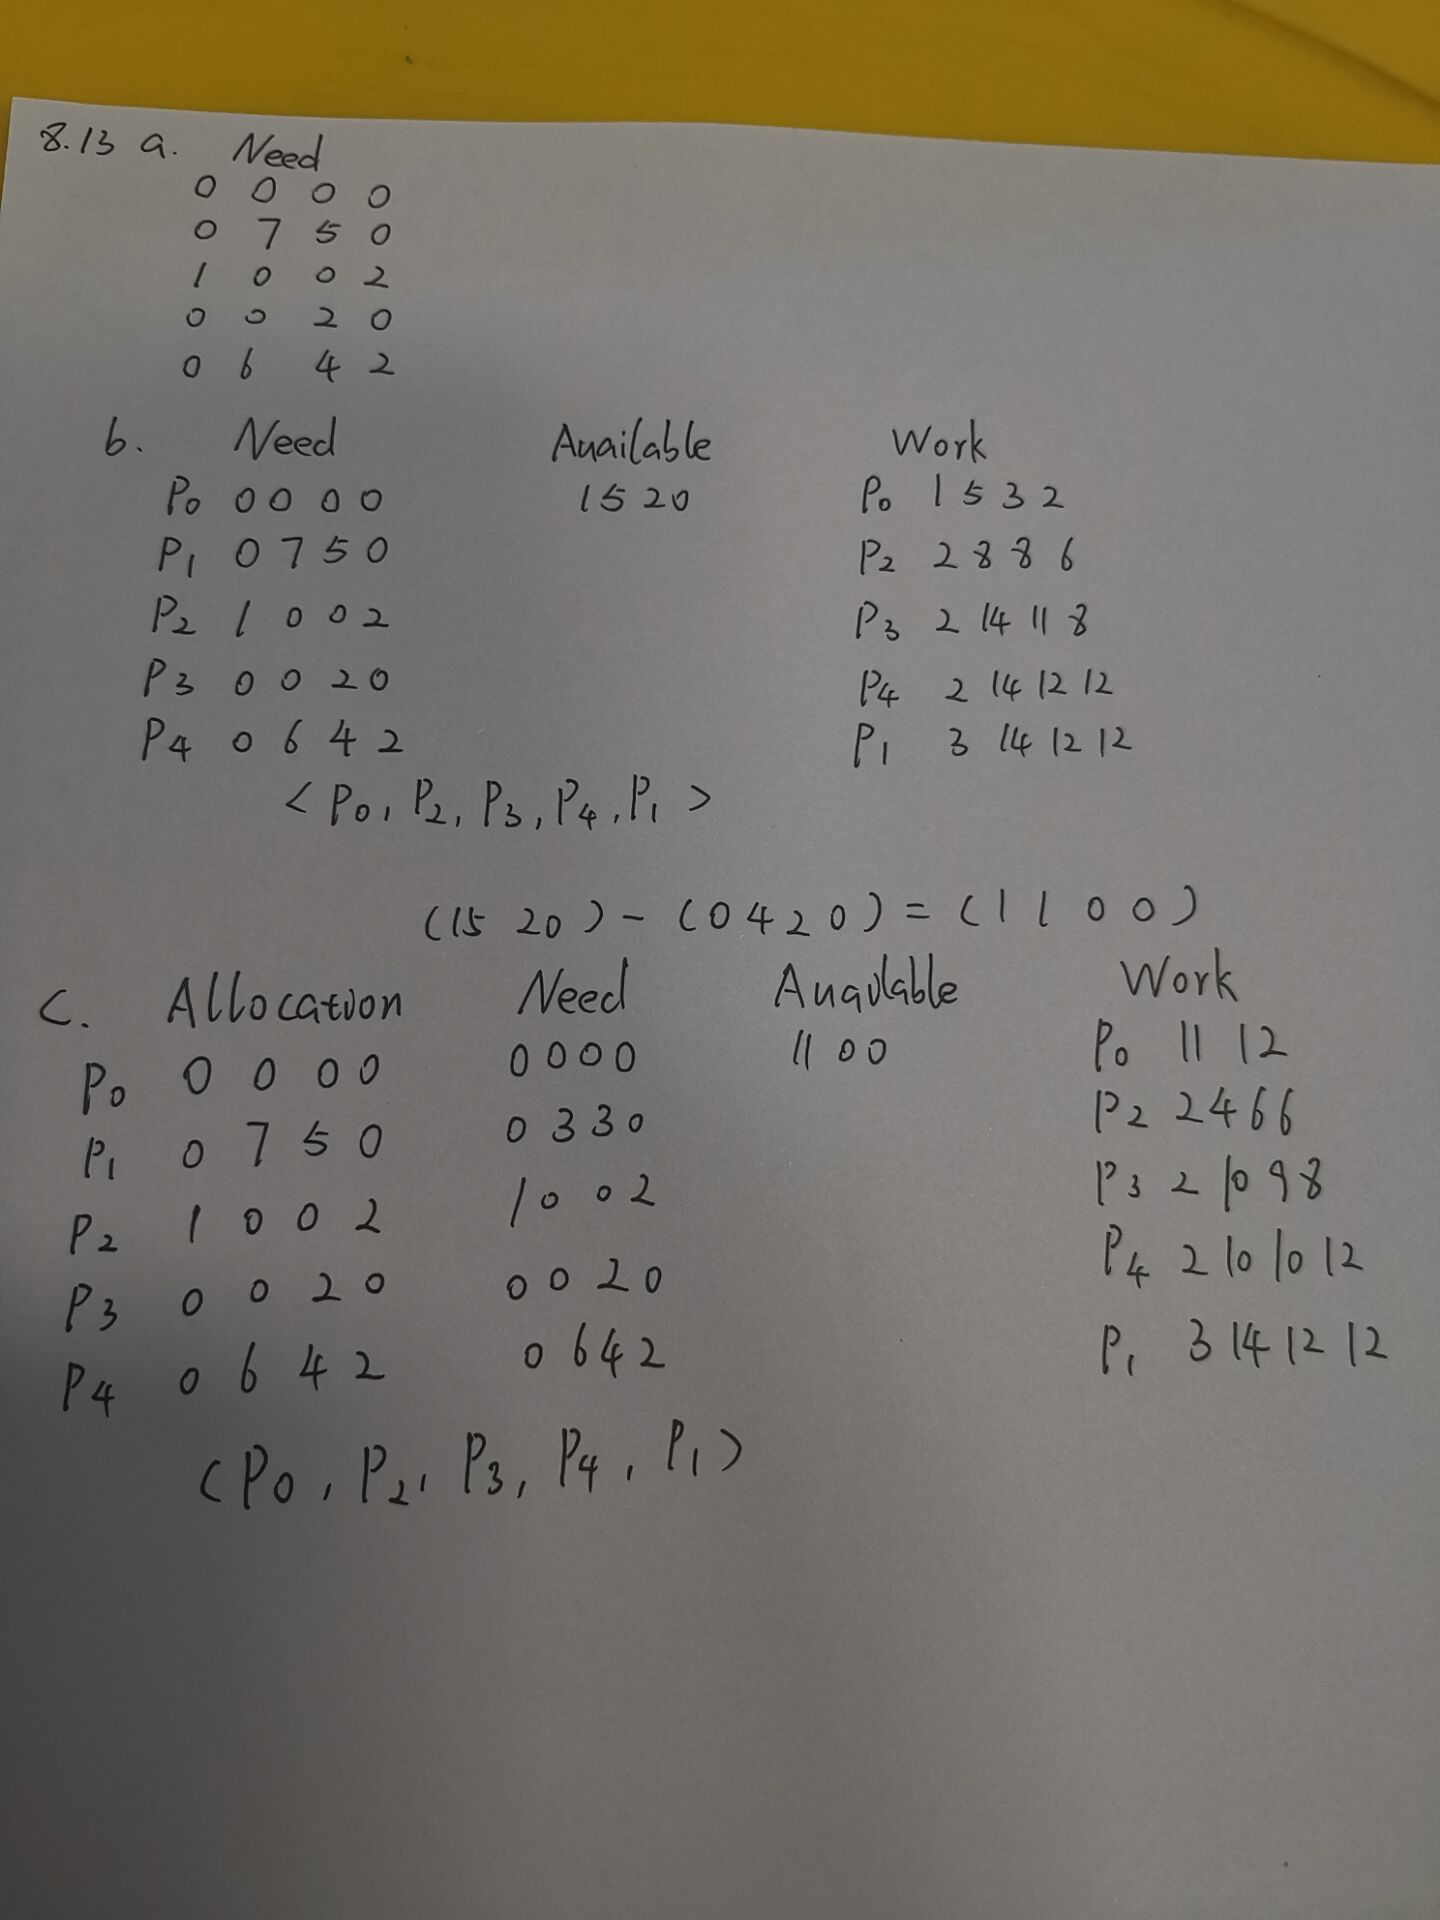 8.13 a. Need
0 0 0 0
0 7 5 0
1 0 0 2
0 0 2 0
0 6 4 2
b. Need Auailable Work
P0 0 0 0 0 1 5 2 0 P0 1 5 3 2
P1 0 7 5 0 P2 2 8 8 6
P2 1 0 0 2 P3 2 14 11 8
P3 0 0 2 0 P4 2 14 12 12
P4 0 6 4 2 P1 3 14 12 12
< P0, P2, P3, P4, P1 >
(15 20) - (0 4 2 0) = (1 1 0 0)
c. Allocation Need Auailable Work
P0 0 0 0 0 0 0 0 0 1 1 0 0 P0 1 1 1 2
P1 0 7 5 0 0 3 3 0 P2 2 4 6 6
P2 1 0 0 2 1 0 0 2 P3 2 10 9 8
P3 0 0 2 0 0 0 2 0 P4 2 10 10 12
P4 0 6 4 2 0 6 4 2 P1 3 14 12 12
<P0, P2, P3, P4, P1>